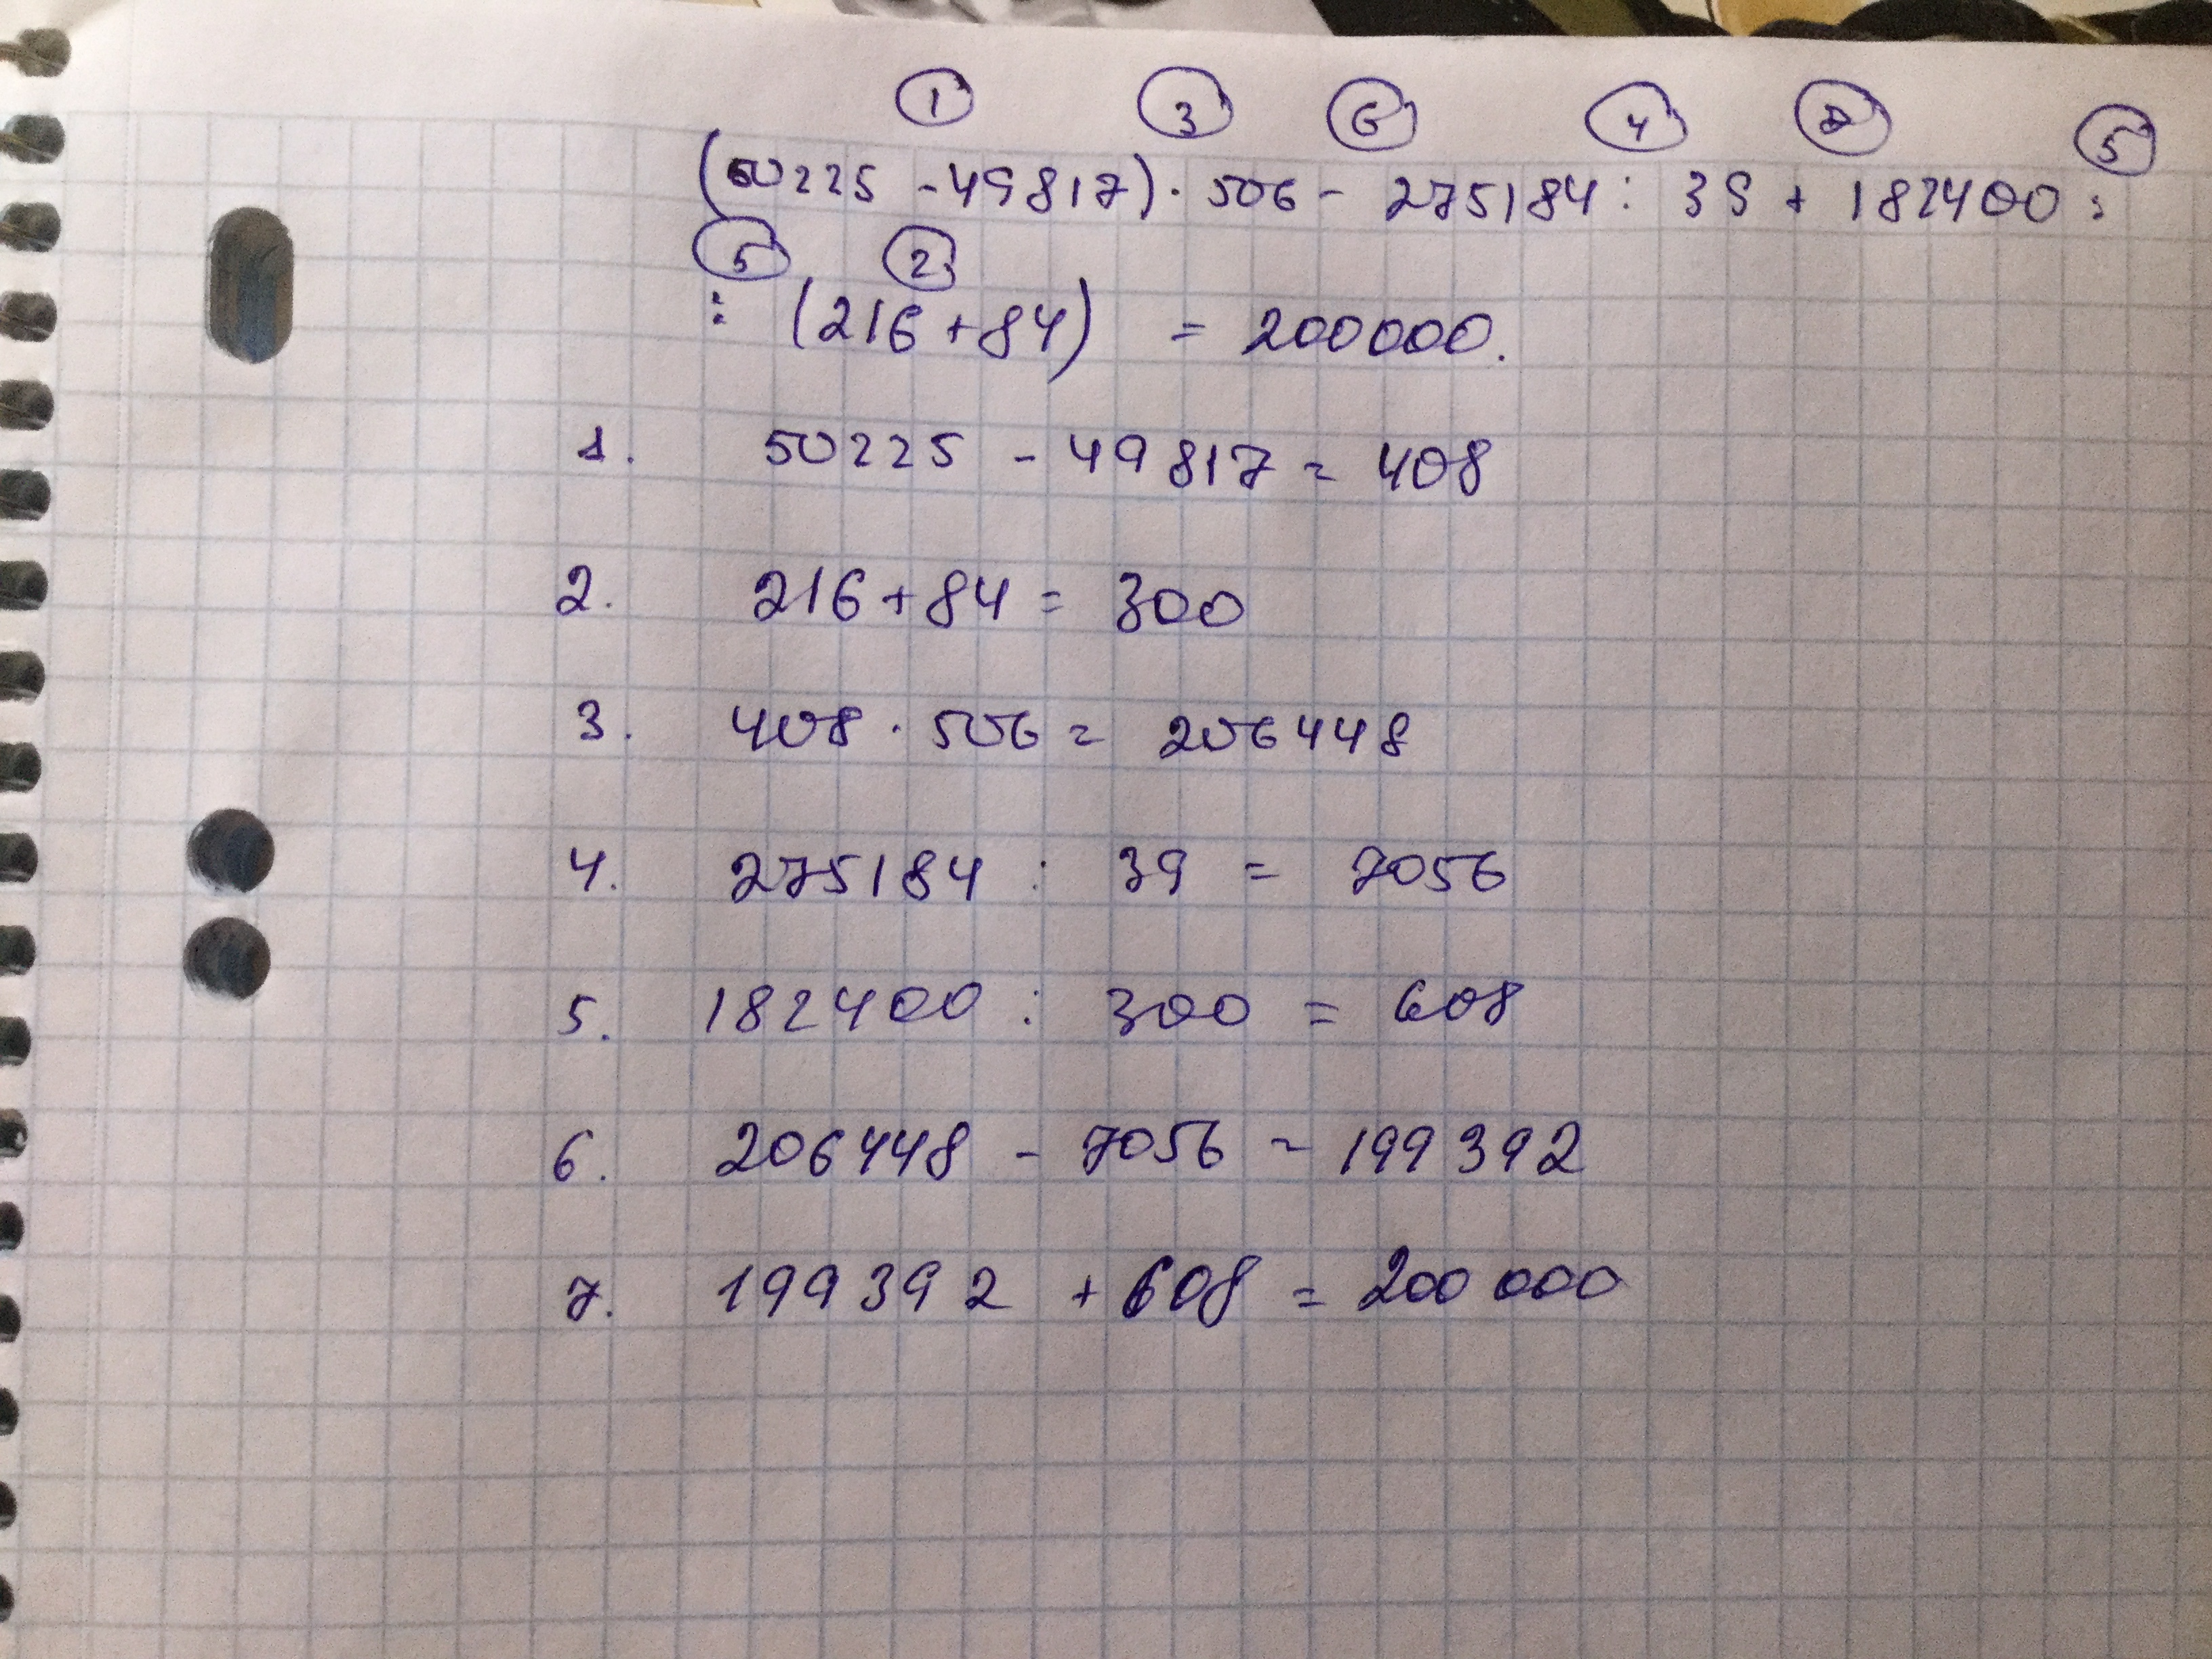 ① ③ ⑥ ④ ⑦ ⑤
(50225 - 49817) · 506 - 275184 : 39 + 182400 :
⑤ ②
: (216 + 84) = 200000.
1. 50225 - 49817 = 408
2. 216 + 84 = 300
3. 408 · 506 = 206448
4. 275184 : 39 = 7056
5. 182400 : 300 = 608
6. 206448 - 7056 = 199392
7. 199392 + 608 = 200000